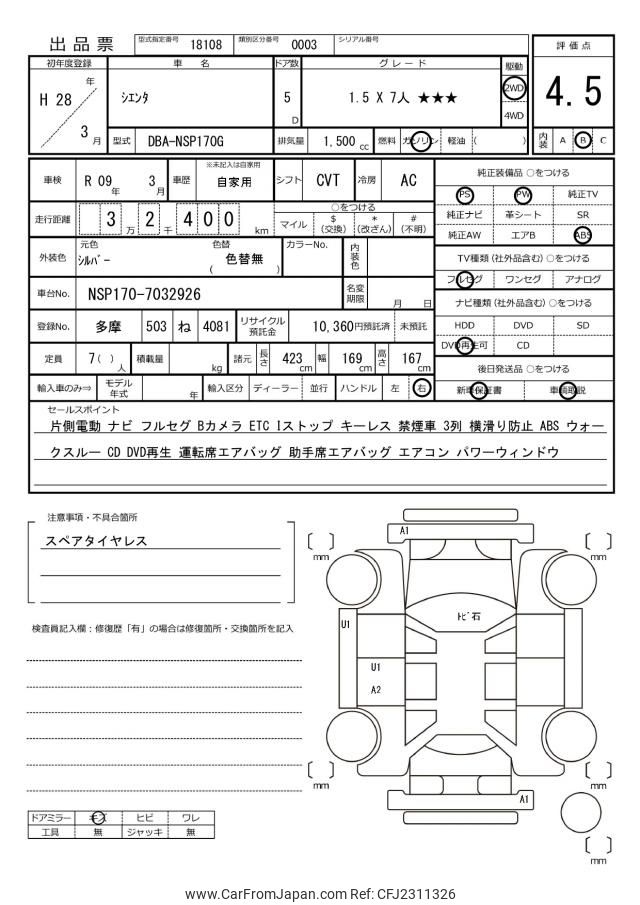 出品票 型式指定番号 18108 類別区分番号 0003 シリアル番号
評価点
4.5
内装 A B C
初年度登録 車名 ドア数 グレード 駆動
H 28 年 3 月
シエンタ
5 D
1.5 X 7人 ★★★
2WD
4WD
型式 DBA-NSP170G 排気量 1,500 cc 燃料 ガソリン 軽油 ( )
車検 R 09 年 3 月 車歴 ※未記入は自家用 自家用 シフト CVT 冷房 AC
走行距離 3 2 万 千 4 0 0 km
○をつける
マイル $ (交換) * (改ざん) # (不明)
外装色 元色 シルバー 色替 ( 色替無 ) カラーNo. 内装色
車台No. NSP170-7032926 名変期限 月 日
登録No. 多摩 503 ね 4081 リサイクル預託金 10,360円預託済 未預託
定員 7 ( ) 人 積載量 kg 諸元 長さ 423 cm 幅 169 cm 高さ 167 cm
輸入車のみ⇒ モデル年式 年 輸入区分 ディーラー 並行 ハンドル 左 右
純正装備品 ○をつける
PS PW 純正TV
純正ナビ 革シート SR
純正AW エアB ABS
TV種類 (社外品含む) ○をつける
フルセグ ワンセグ アナログ
ナビ種類 (社外品含む) ○をつける
HDD DVD SD
DVD再生可 CD
後日発送品 ○をつける
新車保証書 車輌取説
セールスポイント
片側電動 ナビ フルセグ Bカメラ ETC Iストップ キーレス 禁煙車 3列 横滑り防止 ABS ウォー
クスルー CD DVD再生 運転席エアバッグ 助手席エアバッグ エアコン パワーウィンドウ
注意事項・不具合箇所
スペアタイヤレス
検査員記入欄：修復歴「有」の場合は修復箇所・交換箇所を記入
ドアミラー キズ ヒビ ワレ
工具 無 ジャッキ 無
A1
mm
mm
トビ石
U1
U1
A2
mm
mm
A1
mm
www.CarFromJapan.com Ref: CFJ2311326